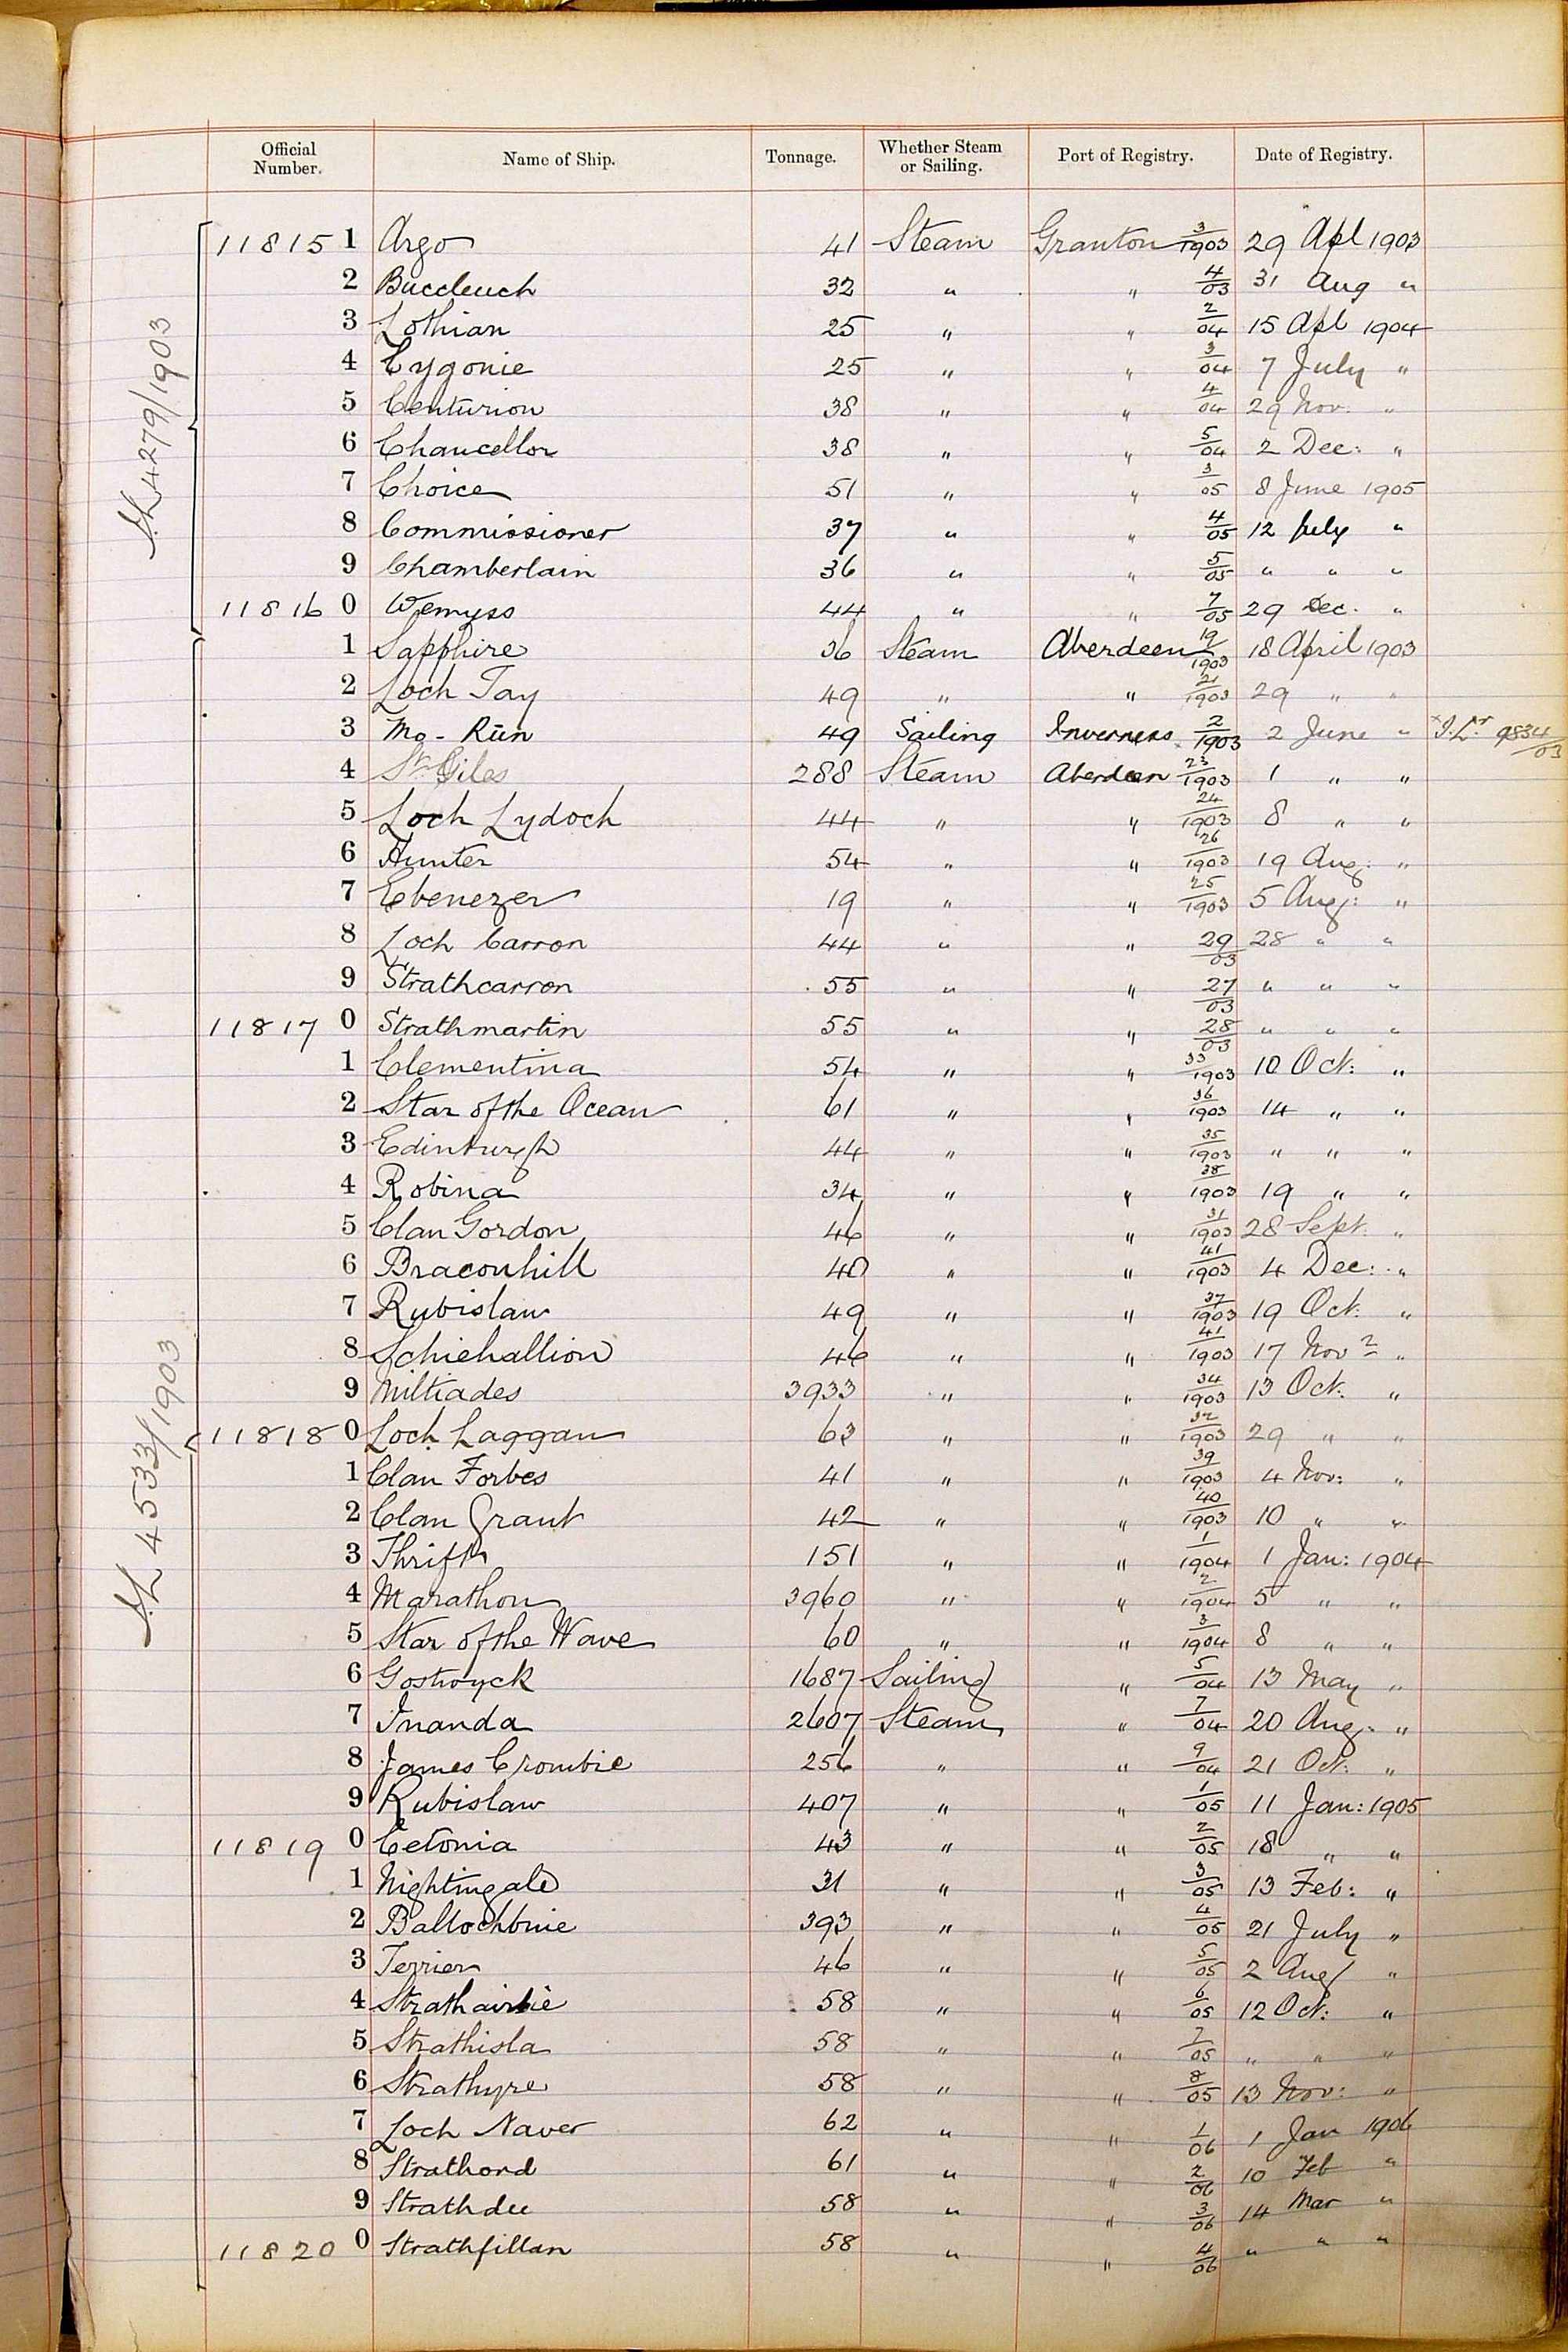 Official Number. Name of Ship. Tonnage. Whether Steam or Sailing. Port of Registry. Date of Registry.
4279/1903
11815 1 Argo 41 Steam Granton 3/1903 29 Apl 1903
2 Buccleuch 32 " " 4/03 31 Aug "
3 Lothian 25 " " 2/04 15 Apl 1904
4 Cygonie 25 " " 3/04 7 July "
5 Centurion 38 " " 4/04 29 Nov. "
6 Chancellor 38 " " 5/04 2 Dec: "
7 Choice 51 " " 3/05 8 June 1905
8 Commissioner 37 " " 4/05 12 July "
9 Chamberlain 36 " " 5/05 " " "
11816 0 Wemyss 44 " " 7/05 29 Dec. "
1 Sapphire 36 Steam Aberdeen 19/1903 18 April 1903
2 Loch Tay 49 " " 21/1903 29 " "
3 Mo-Rūn 49 Sailing Inverness 2/1903 2 June " 9834/03
4 St Giles 288 Steam Aberdeen 23/1903 1 " "
5 Loch Lydoch 44 " " 24/1903 8 " "
6 Hunter 54 " " 26/1903 19 Aug: "
7 Ebenezer 19 " " 25/1903 5 Aug: "
8 Loch Carron 44 " " 29/03 28 " "
9 Strathcarron 55 " " 27/03 " " "
11817 0 Strathmartin 55 " " 28/03 " " "
1 Clementina 54 " " 33/1903 10 Oct: "
2 Star of the Ocean 61 " " 36/1903 14 " "
3 Edinburgh 44 " " 35/1903 " " "
4 Robina 34 " " 38/1903 19 " "
5 Clan Gordon 46 " " 31/1903 28 Sept. "
6 Braconhill 40 " " 41/1903 4 Dec: "
7 Rubislaw 49 " " 37/1903 19 Oct. "
8 Schiehallion 46 " " 41/1903 17 Nov ? "
9 Miltiades 3933 " " 34/1903 13 Oct. "
4533/1903
11818 0 Loch Laggan 63 " " 32/1903 29 " "
1 Clan Forbes 41 " " 39/1903 4 Nov: "
2 Clan Grant 42 " " 40/1903 10 " "
3 Thrift 151 " " 1/1904 1 Jan: 1904
4 Marathon 3960 " " 2/1904 5 " "
5 Star of the Wave 60 " " 3/1904 8 " "
6 Gostwyck 1687 Sailing " 5/04 13 May "
7 Inanda 2607 Steam " 7/04 20 Aug. "
8 James Crombie 256 " " 9/04 21 Oct: "
9 Rubislaw 407 " " 1/05 11 Jan: 1905
11819 0 Cetonia 43 " " 2/05 18 " "
1 Nightingale 31 " " 3/05 13 Feb: "
2 Ballochbuie 393 " " 4/05 21 July "
3 Terrier 46 " " 5/05 2 Aug "
4 Strathairlie 58 " " 6/05 12 Oct: "
5 Strathisla 58 " " 7/05 " " "
6 Strathyre 58 " " 8/05 13 Nov: "
7 Loch Naver 62 " " 1/06 1 Jan 1906
8 Strathord 61 " " 2/06 10 Feb "
9 Strathdee 58 " " 3/06 14 Mar "
11820 0 Strathfillan 58 " " 4/06 " " "